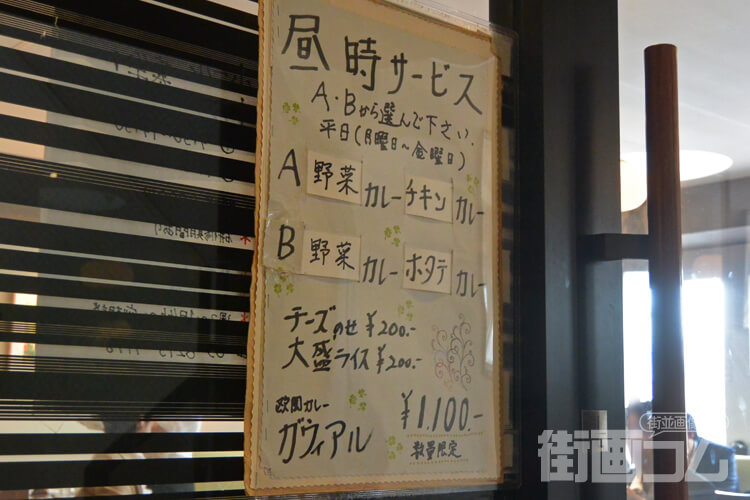 昼時サービス
A・Bから選んで下さい。
平日(月曜日~金曜日)
A 野菜カレー チキンカレー
B 野菜カレー ホタテカレー
チーズのせ ¥200.-
大盛ライス ¥200.-
欧風カレー
ガヴィアル ¥1,100.-
数量限定
街並画像
街画コム